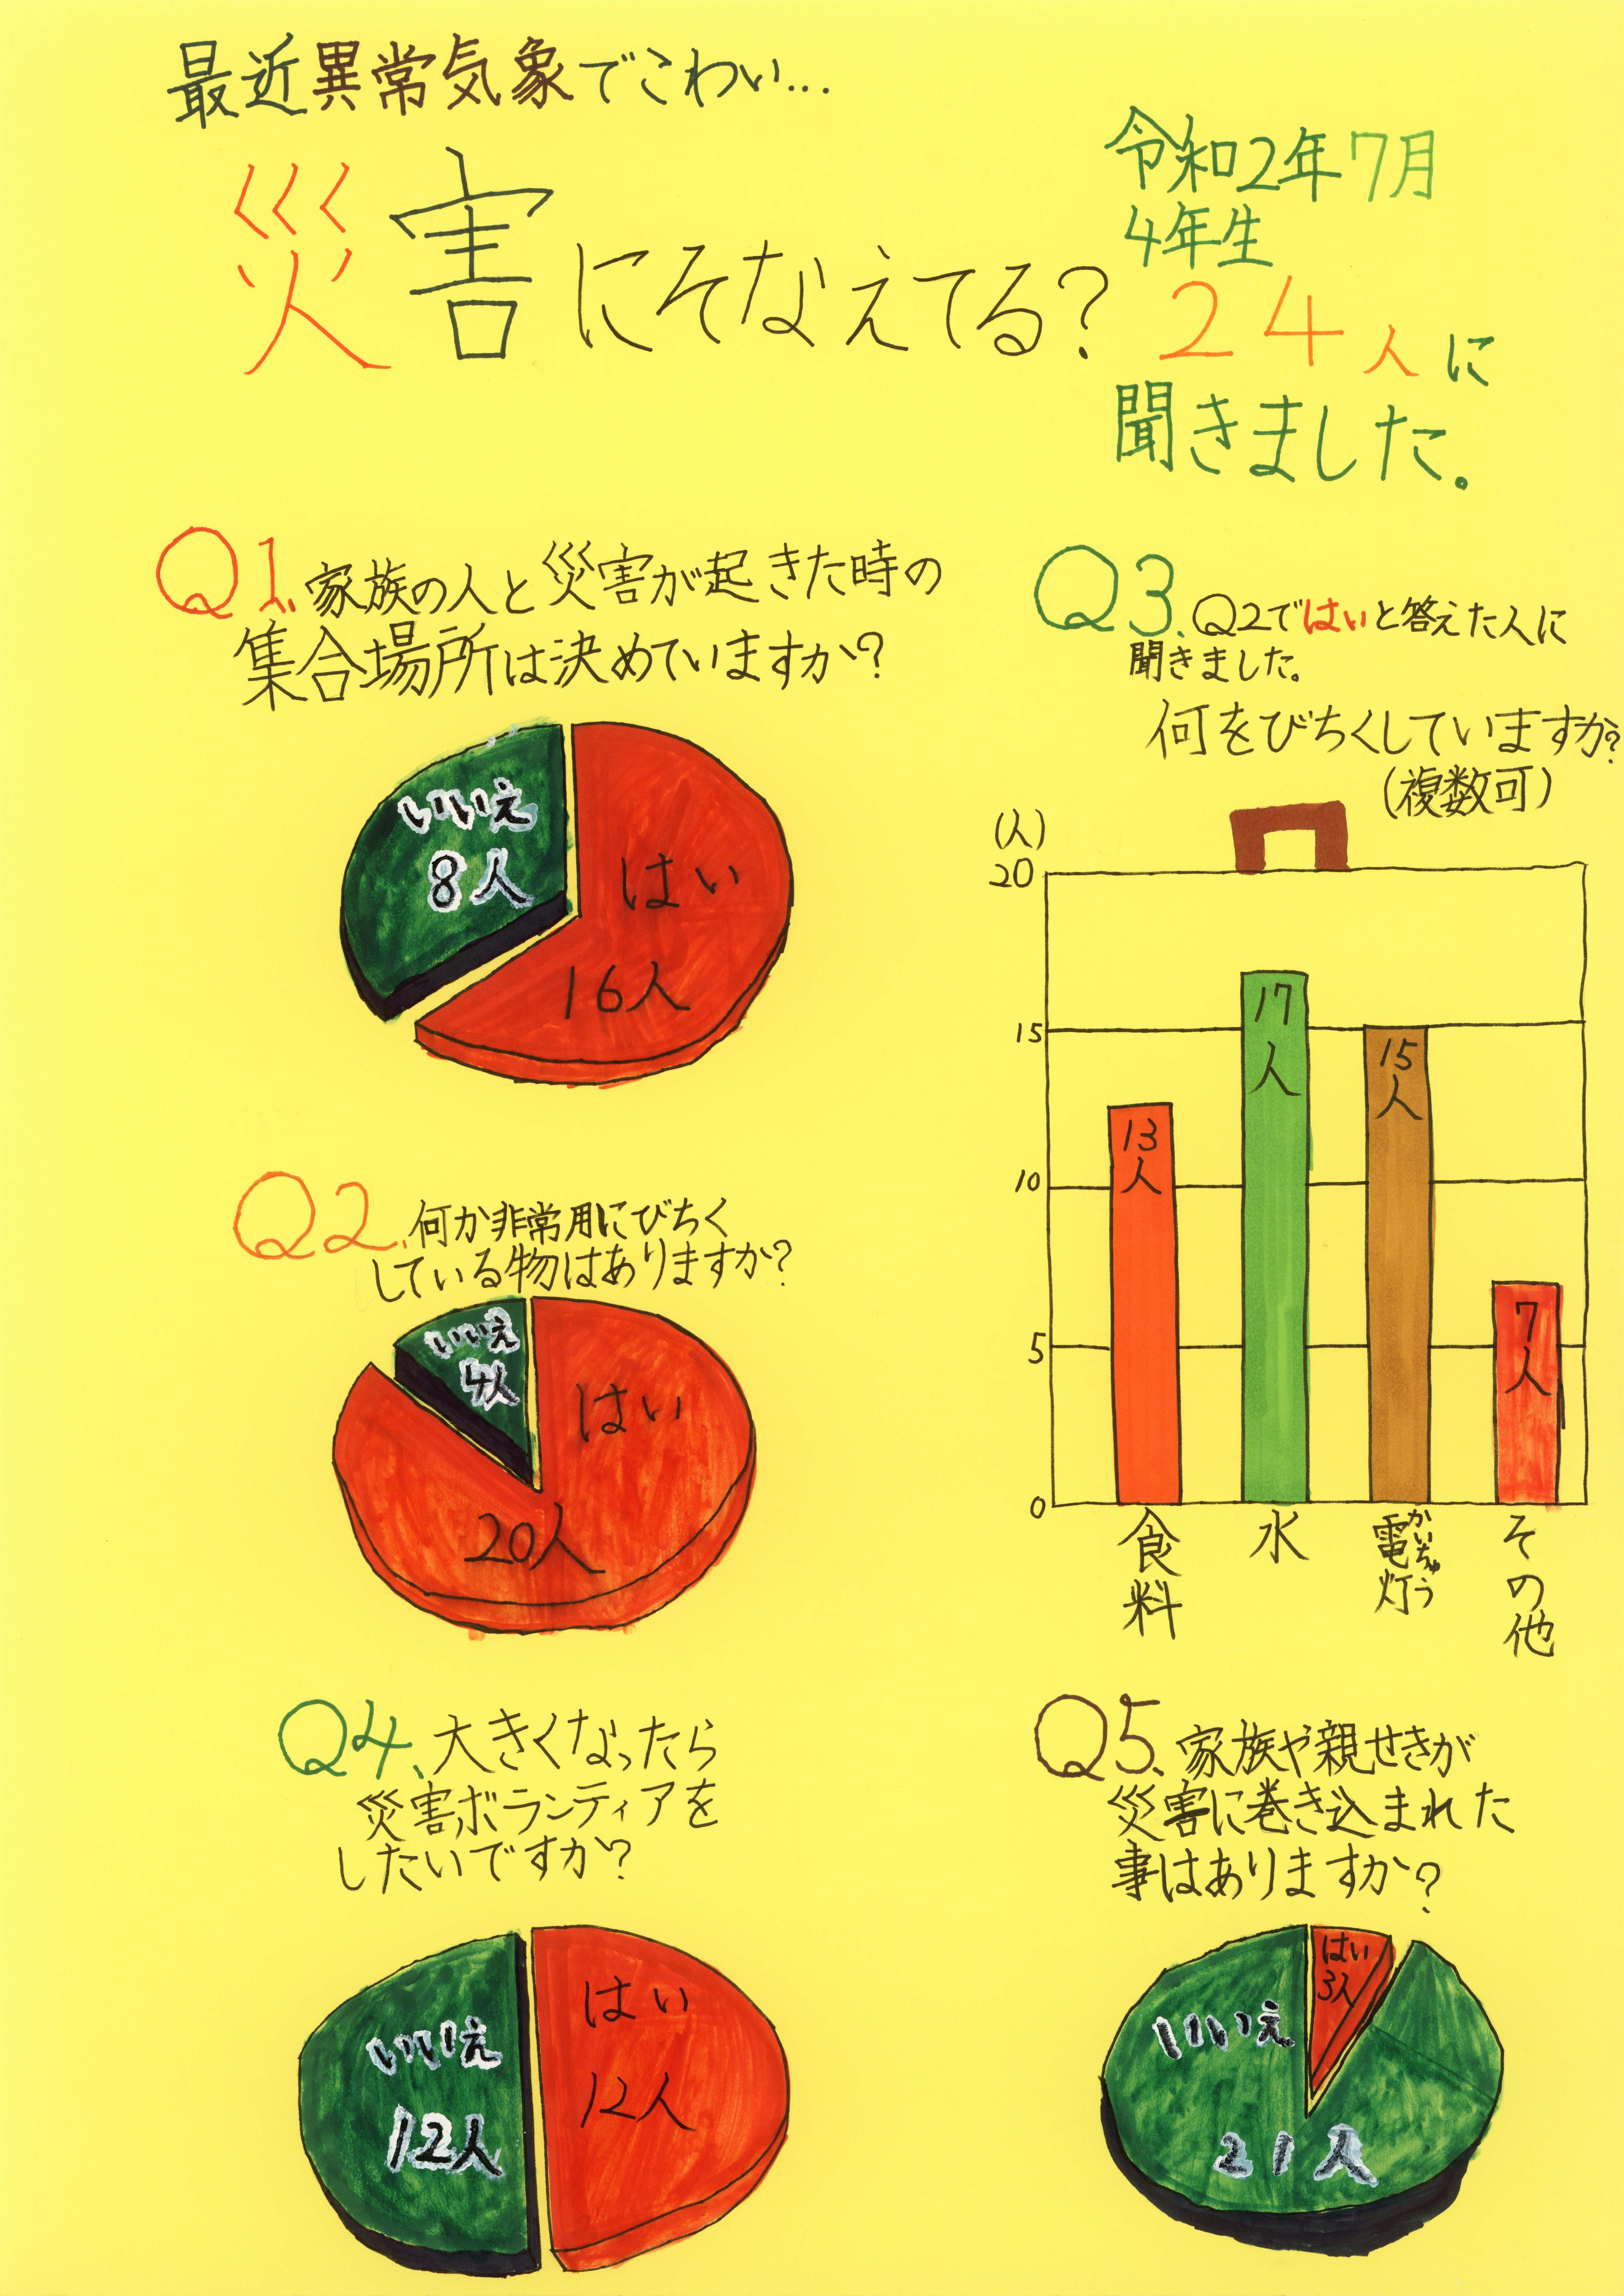 最近異常気象でこわい…
災害にそなえてる?
令和2年7月
4年生
24人に
聞きました。
Q1.家族の人と災害が起きた時の
集合場所は決めていますか?
いいえ
8人
はい
16人
Q2.何か非常用にびちく
している物はありますか?
いいえ
4人
はい
20人
Q3.Q2ではいと答えた人に
聞きました。
何をびちくしていますか?
(複数可)
(人)
20
15
10
5
0
13人
17人
15人
7人
食料
水
かいちゅう
電灯
その他
Q4.大きくなったら
災害ボランティアを
したいですか?
いいえ
12人
はい
12人
Q5.家族や親せきが
災害に巻き込まれた
事はありますか?
はい
3人
いいえ
21人